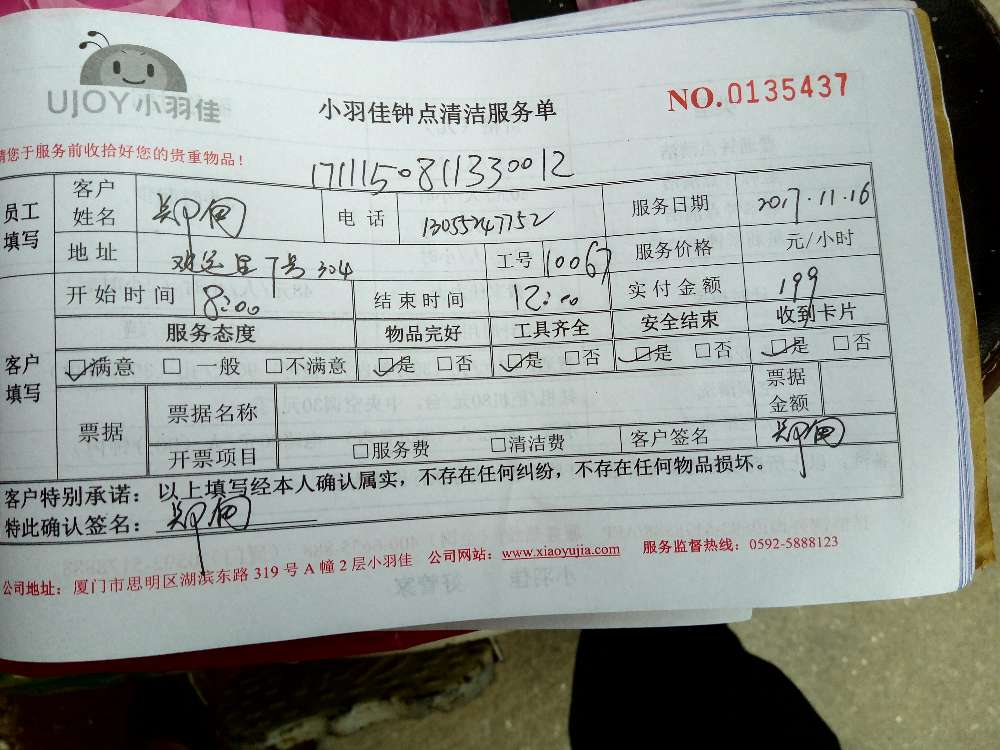 UJOY小羽佳
小羽佳钟点清洁服务单
NO.0135437
请您于服务前收拾好您的贵重物品！
1711150811330012
员工填写 客户姓名 电话 13055247752 服务日期 2017.11.16
地址 7号304 工号 10067 服务价格 元/小时
客户填写 开始时间 8:00 结束时间 12:00 实付金额 199
服务态度 物品完好 工具齐全 安全结束 收到卡片
☑满意 □一般 □不满意 ☑是 □否 ☑是 □否 ☑是 □否 ☑是 □否
票据 票据名称 票据金额
开票项目 □服务费 □清洁费 客户签名
客户特别承诺：以上填写经本人确认属实，不存在任何纠纷，不存在任何物品损坏。
特此确认签名：
公司地址：厦门市思明区湖滨东路319号A幢2层小羽佳 公司网站：www.xiaoyujia.com 服务监督热线：0592-5888123